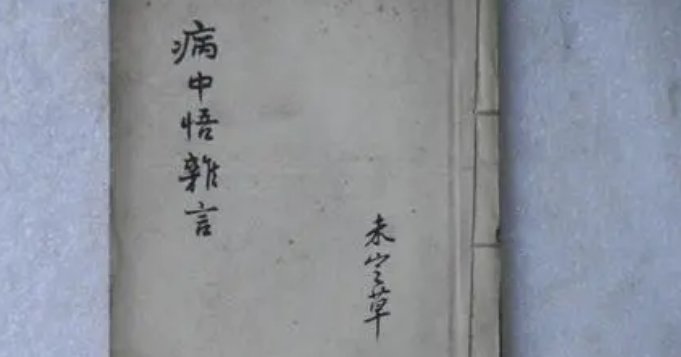 病中悟雜言
未定草